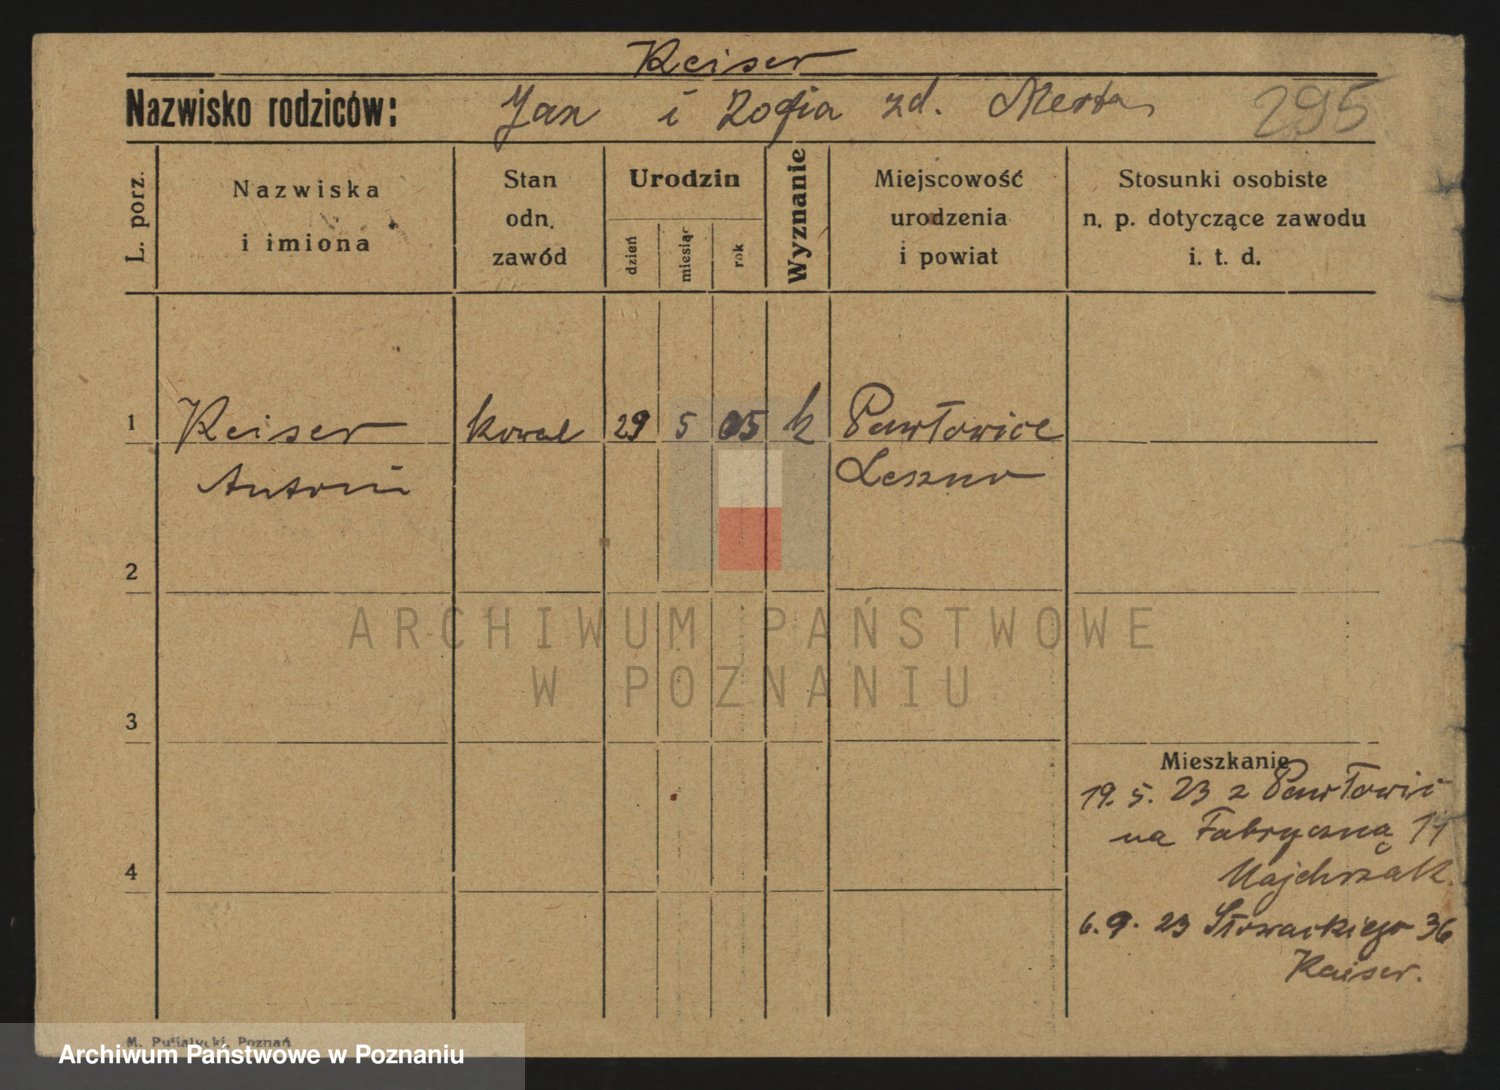 Keiser
Nazwisko rodziców: Jan i Zofia zd. Merta 295
L. porz. Nazwiska i imiona Stan odn. zawód Urodzin dzień miesiąc rok Wyznanie Miejscowość urodzenia i powiat Stosunki osobiste n. p. dotyczące zawodu i. t. d.
1 Keiser kowal 29 5 05 k Pawłowice
Antoni Leszno
2
ARCHIWUM PAŃSTWOWE
W POZNANIU
3
Mieszkanie
19. 5. 23 z Pawłowic
na Fabryczną 11
4
Majchrzak.
6. 9. 23 Słowackiego 36
Kaiser.
M. Putiatycki, Poznań
Archiwum Państwowe w Poznaniu